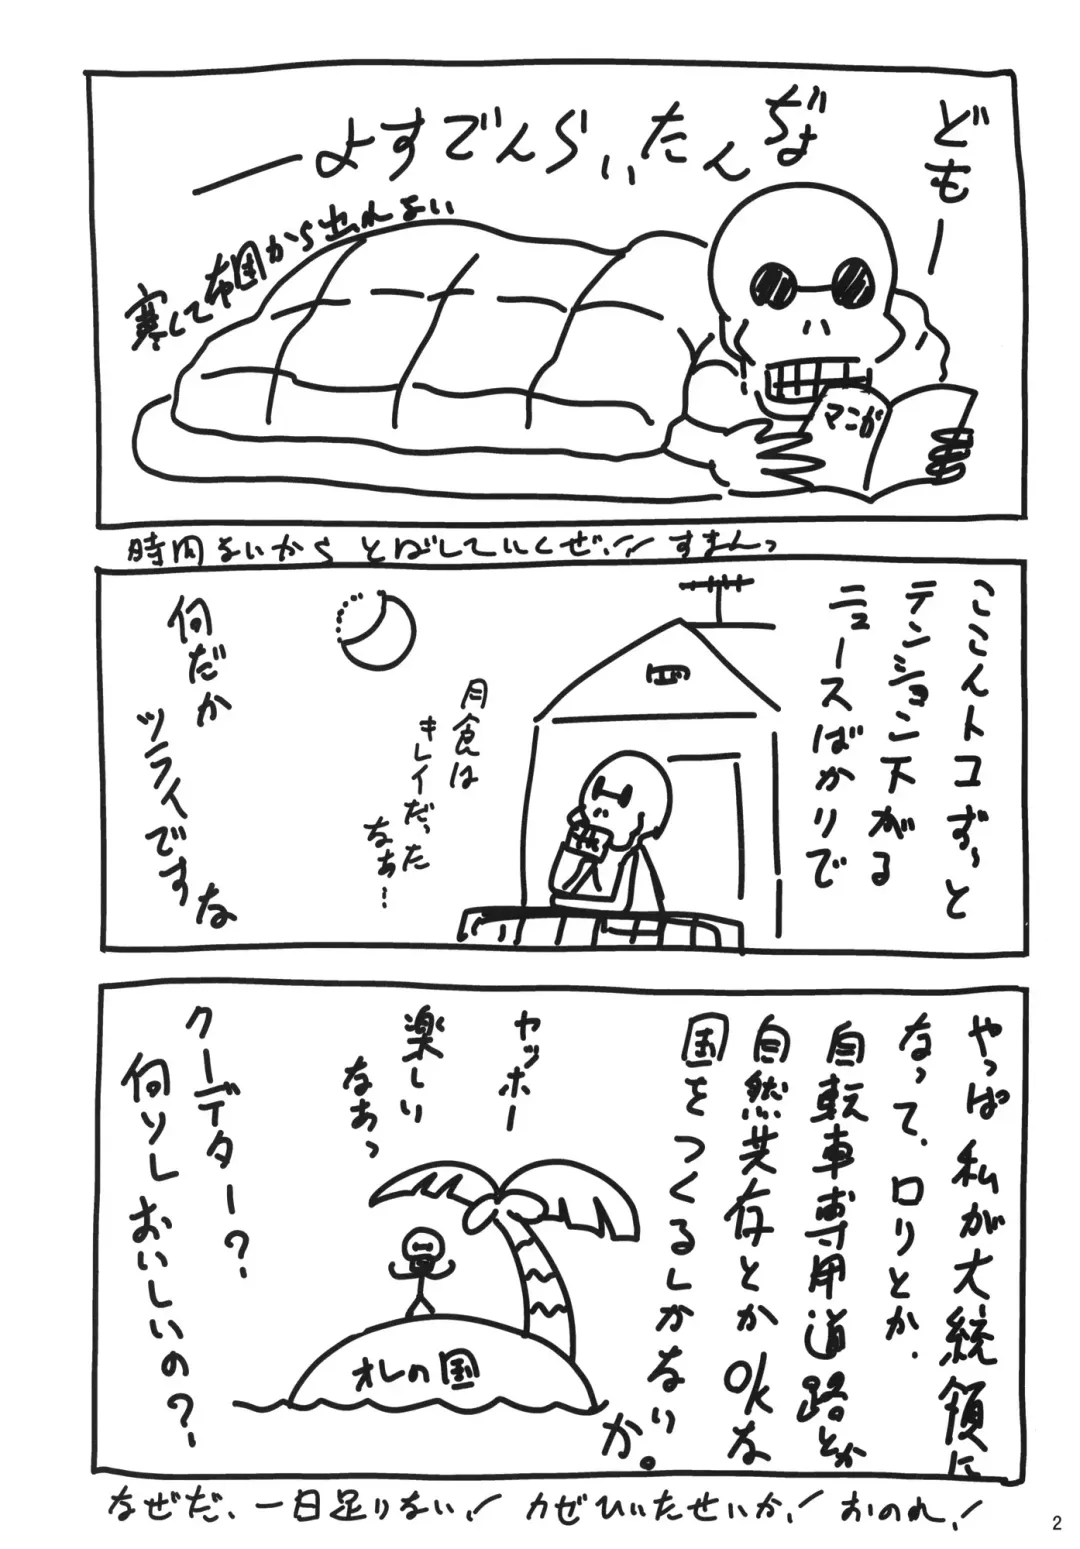 どもー
ぢょんたいらんですよー
寒くて布団から出れない
マンガ
時間ないからとばしていくぜ!!すまんっ
ここんトコずっと
テンション下がる
ニュースばかりで
月食は
キレイだった
なぁ…
何だか
ツライですな
やっぱ私が大統領に
なって、ロリとか、
自転車専用道路とか
自然共存とかOKな
国をつくるしかないか。
ヤッホー
楽しい
なぁっ
オレの国
クーデター?
何ソレおいしいの?
なぜだ、一日足りない!カゼひいたせいか!おのれ!
2